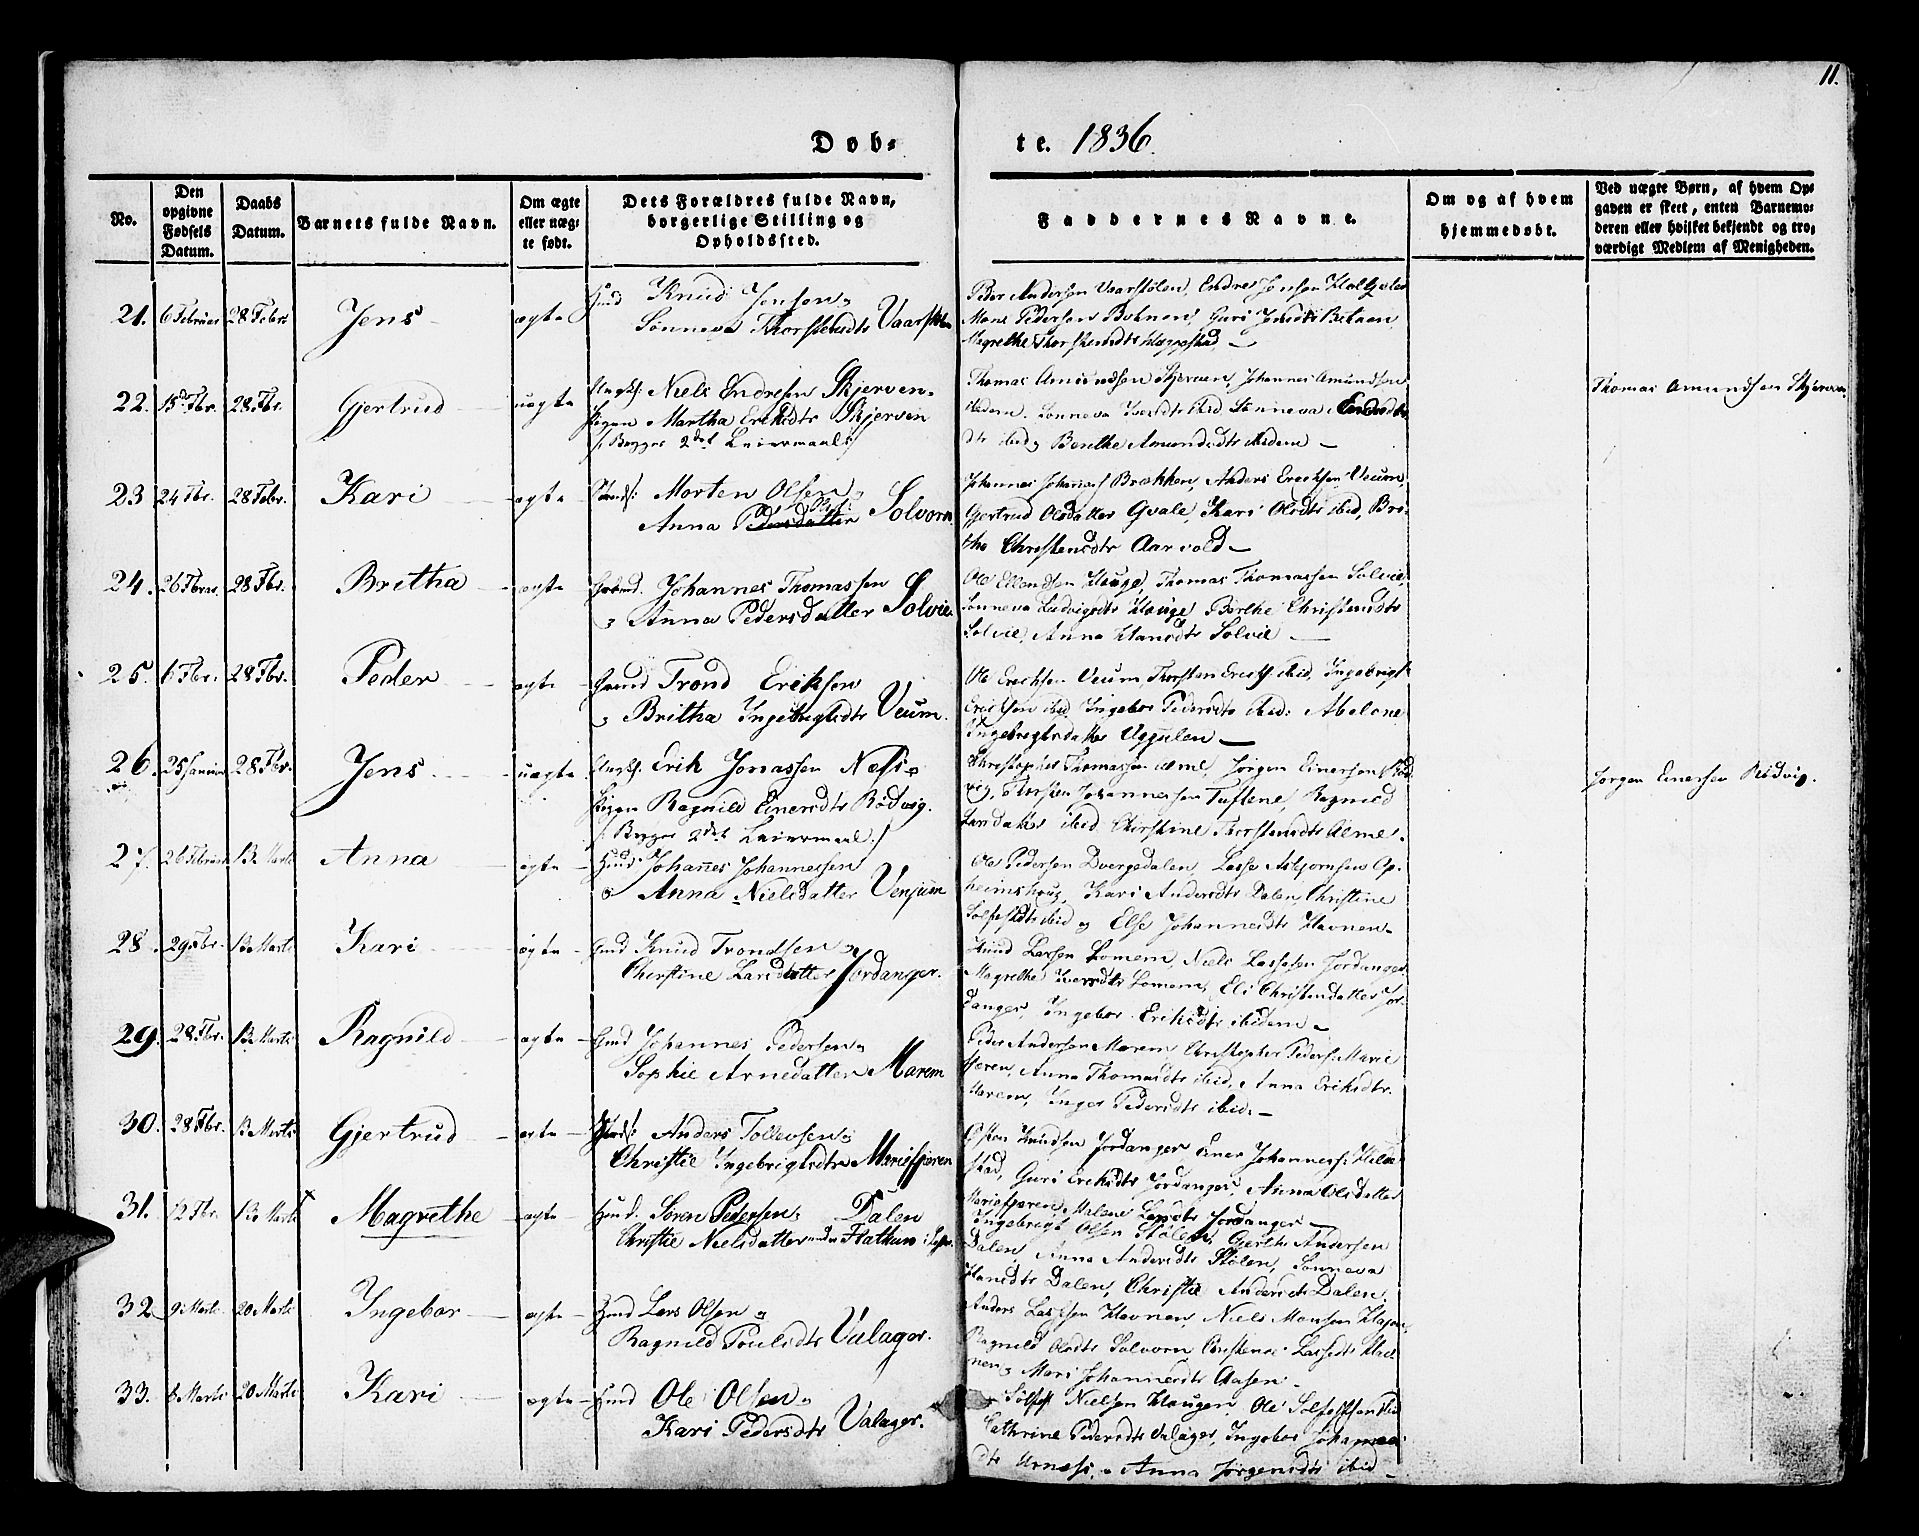 11.
Døb-
te. 1836.
No.
Den opgivne Fødsels Datum.
Daabs Datum.
Barnets fulde Navn.
Om ægte eller uægte født.
Dets Forældres fulde Navn, borgerlige Stilling og Opholdssted.
Faddernes Navne.
Om og af hvem hjemmedøbt.
Ved uægte Børn, af hvem Opgaven er skeet, enten Barnemoderen eller hvilket bekjendt og troværdigt Medlem af Menigheden.
21. 6 Februar 28 Febr Jens ægte Hmd Knud Jensen
Sønneva Thorstensdtr Vaarstølen
Peder Andersen Vaarstølen, Endre Jensen
Mons Pedersen Guri
Magrethe Thorstensdtr
22. 15 Fbr. 28 Fbr. Gjertrud uægte Ungk: Niels Endresen Skjerven
Pigen Martha Eriksdtr Skjerven
/: Begges 2det Leiermaal :/
Thomas Amundsen Skjerven, Johannes Amundsen
ibidem. Sønneva ibid Sønneva
dtr ibid og Berthe Amundsdtr ibidem
Thomas Amundsen Skjerven
23 24 Fbr. 28 Febr. Kari ægte Morten Olsen
Ols
Anna Pedersdatter Solvorn
Johannes Johannes Brækken, Anders Ericksen Veum,
Gjertrud Olsdatter Qvale, Kari Olsdtr ibid, Bri-
tha Christensdtr Aarvold
24. 26 Fbr. 28 Fbr. Britha ægte Johannes Thomassen
Anna Pedersdatter Solvie
Ole Ellendsen Houge, Thomas Thomassen Solvie,
Sønneva Ludvigsdtr Houge, Berthe Christensdtr
Solvie, Anna Hansdtr Solvie
25. 6 Fbr. 28 Fbr. Peder ægte Gmd Trond Eriksen
Britha Ingebrigtsdtr Veum.
Ole Erichsen Veum, Thorsten ibid, Ingebrigt
Ericksen ibid, Ingebor Pedersdtr ibid: Abelone
Ingebrigtsdatter
26. 25 Januar 28 Fbr. Jens uægte Ungk: Erik Jonassen Næss
Pigen Ragnild Einersdtr Rødvig.
/: Begges 2det Leiermaal :/
Christopher Thomassen Alme, Jørgen Einersen Rød-
vig, Thorsten Johannessen Tuftene, Ragnild
ibid Christine Thorstensdtr Alme.
Jørgen Einersen Rødvig.
27. 26 Februar 13 Marti Anna ægte Hmd: Johañes Johannessen
Anna Nielsdatter Venjum
Ole Pedersen Dvergedalen, Lasse Asbjørnsen Op-
heimshoug, Kari Andersdtr Dalen, Christine
ibid og Else Johannesdtr Havnen
28. 29 Fbr. 13 Marti Kari ægte Gmd Knud Trondsen
Cherstine Larsdatter Jordanger.
Knud Larsen Lomem, Niels Lassesen Jordanger,
Magrethe Lomem, Eli Christensdatter Jor-
danger, Ingebor Eriksdtr ibidem
29. 28 Fbr. 13 Marti Ragnild ægte Gmd Johannes Pedersen
Sophie Arnedatter Marem
Peder Andersen Marem, Christopher Peders: Marie
fjøren, Anna Thomasdtr ibid, Anna Eriksdtr
Marem, Inger Pedersdtr ibid.
30. 28 Fbr. 13 Marti Gjertrud ægte Anders Tollevsen
Christie Ingebrigtsdtr Mariefjøren
Knudsen Jordanger Einer Johanness:
stad, Guri Eriksdtr Jordanger, Anna Olsdatter
Mariefjøren, Malene Larsdtr Jordanger
31. 12 Fbr. 13 Marti Magrethe ægte Hmd: Søren Pedersen Dalen
Christie Nielsdatter
Ingebrigt Olsen Stølen, Gjerth Andersen
Dalen, Anna Andersdtr Stølen, Sønneva
Hansdtr Dalen, Christie Andersdtr Dalen.
32 9 Marti 20 Marti Ingebor ægte Hmd Lars Olsen
Ragnild Poulsdtr Valager.
Anders Lassesen Havnen, Niels Monsen
Ragnild Olsdtr Solvorn Lassedtr Hav-
nen, Mari Johannesdtr Aasen
33. 8 Marti 20 Marti Kari ægte Hmd Ole Olsen
Kari Pedersdtr Valager.
Nielsen Haugen, Ole ibid
Cathrine Pedersdtr Valager, Ingebor Johannes
dtr Urness, Anna Jørgensdtr ibid